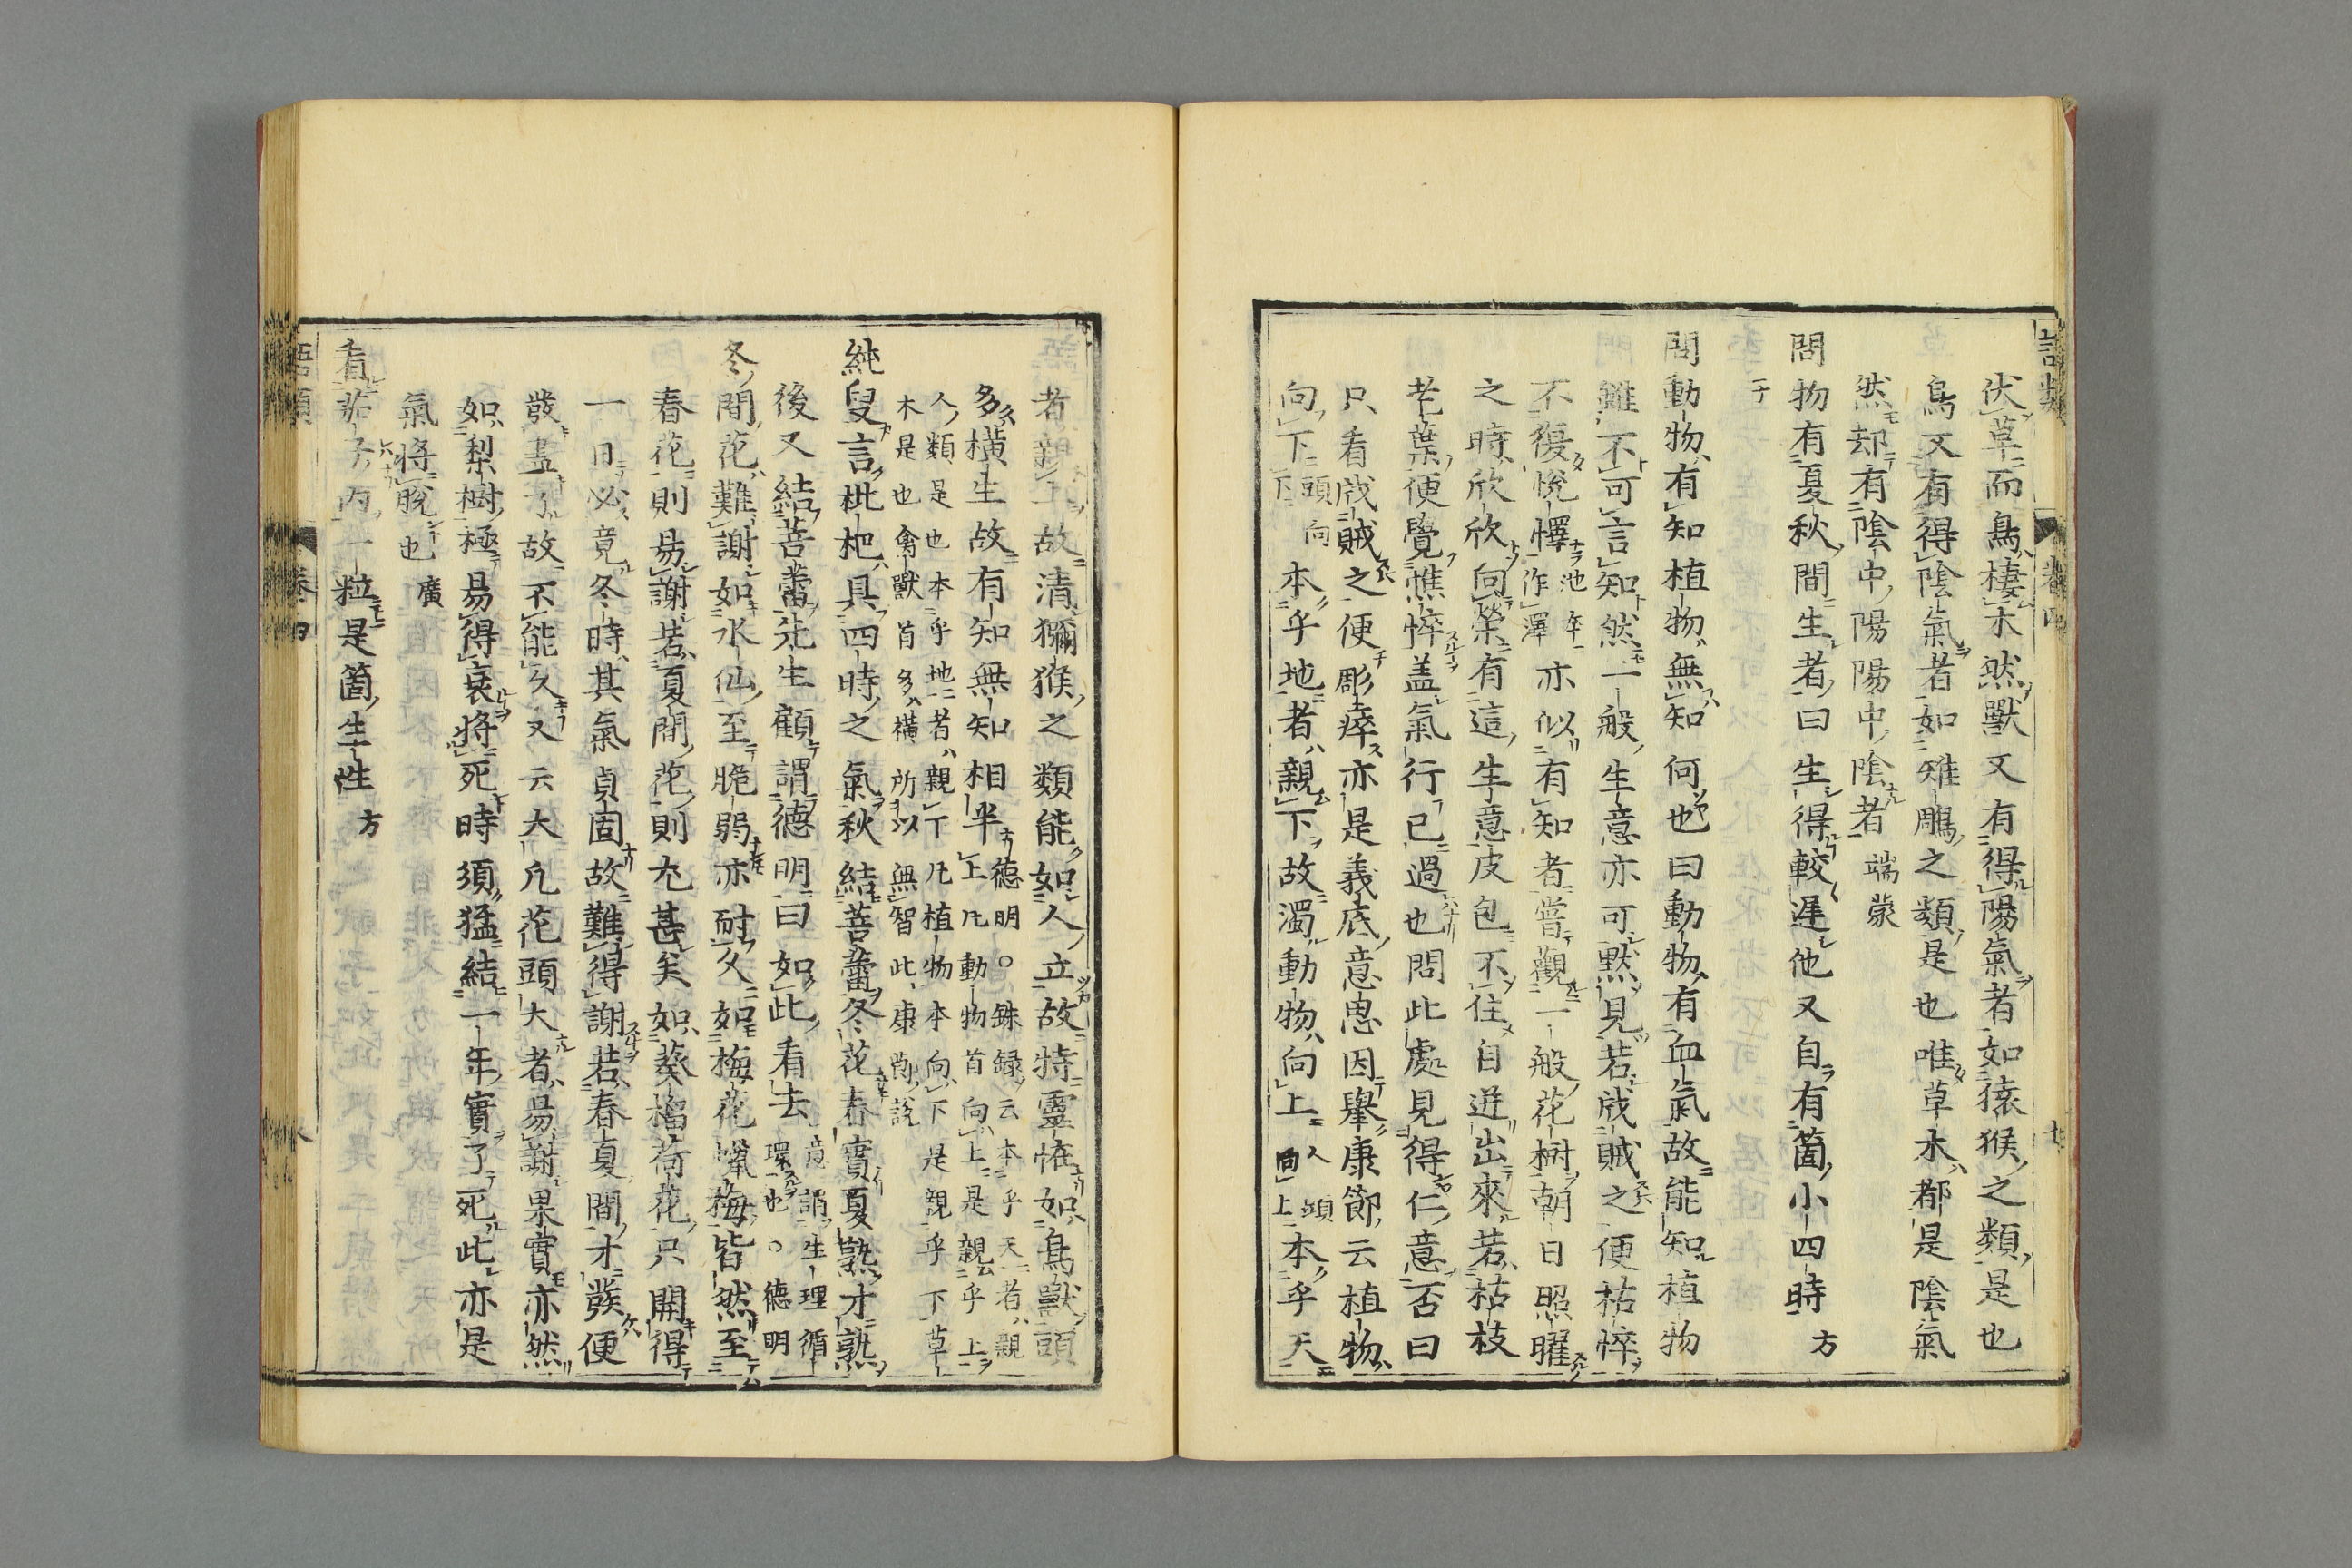 語類 卷四 七
伏草而鳥棲木然獸又有得陽氣者如猿猴之類是也
鳥又有得陰氣者如雉鵰之類是也唯草木都是陰氣
然却有陰中陽陽中陰者 端蒙
問物有夏秋間生者曰生得較遲他又自有箇小四時 方
問動物有知植物無知何也曰動物有血氣故能知植物
雖不可言知然一般生意亦可默見若戕賊之便枯悴
不復悅懌 池本作澤 亦似有知者嘗觀一般花樹朝日照曜
之時欣欣向榮有這生意皮包不住自迸出來若枯枝
老葉便覺憔悴蓋氣行已過也問此處見得仁意否曰
只看戕賊之便彫瘁亦是義底意思因擧康節云植物
向下 頭向下 本乎地者親下故濁動物向上 人頭向上 本乎天
者親上故清獼猴之類能如人立故特靈恠如鳥獸頭
多橫生故有知無知相半 德明○銖録云本乎天者親
上凡動物首向上是親乎上
人類是也本乎地者親下凡植物本向下是親乎下草
木是也禽獸首多橫所以無智此康節說
純叟言枇杷具四時之氣秋結菩蕾冬花春實夏熟才熟
後又結菩蕾先生顧謂德明曰如此看去 意謂生理循
環也○德明
冬間花難謝如水仙至脆弱亦耐久如梅花蠟梅皆然至
春花則易謝若夏間花則尤甚矣如葵榴荷花只開得
一日必竟冬時其氣貞固故難得謝若春夏間才發便
發盡了故不能久又云大凡花頭大者易謝果實亦然
如梨樹極易得衰將死時須猛結一年實了死此亦是
氣將脫也 廣
看茄子內一粒是箇生性 方
語類 卷四